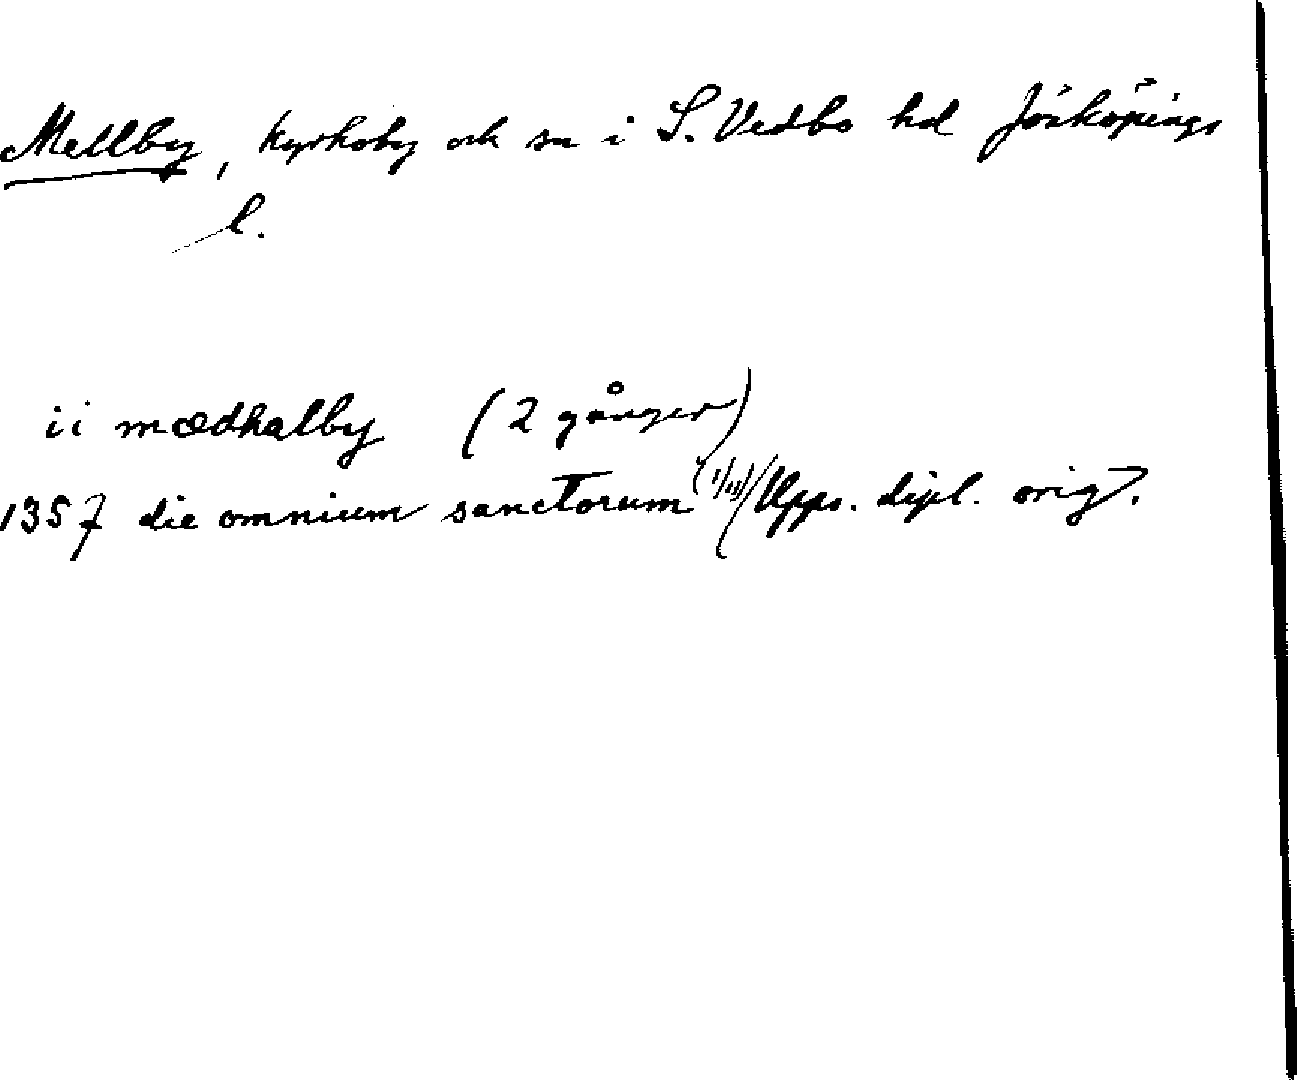 Mellby, kyrkoby och sn i S. Vedbo hd Jönköpings
l.
ii mædhalby (2 gånger)
1357 die omnium sanctorum (1/11) Upps. dipl. orig.